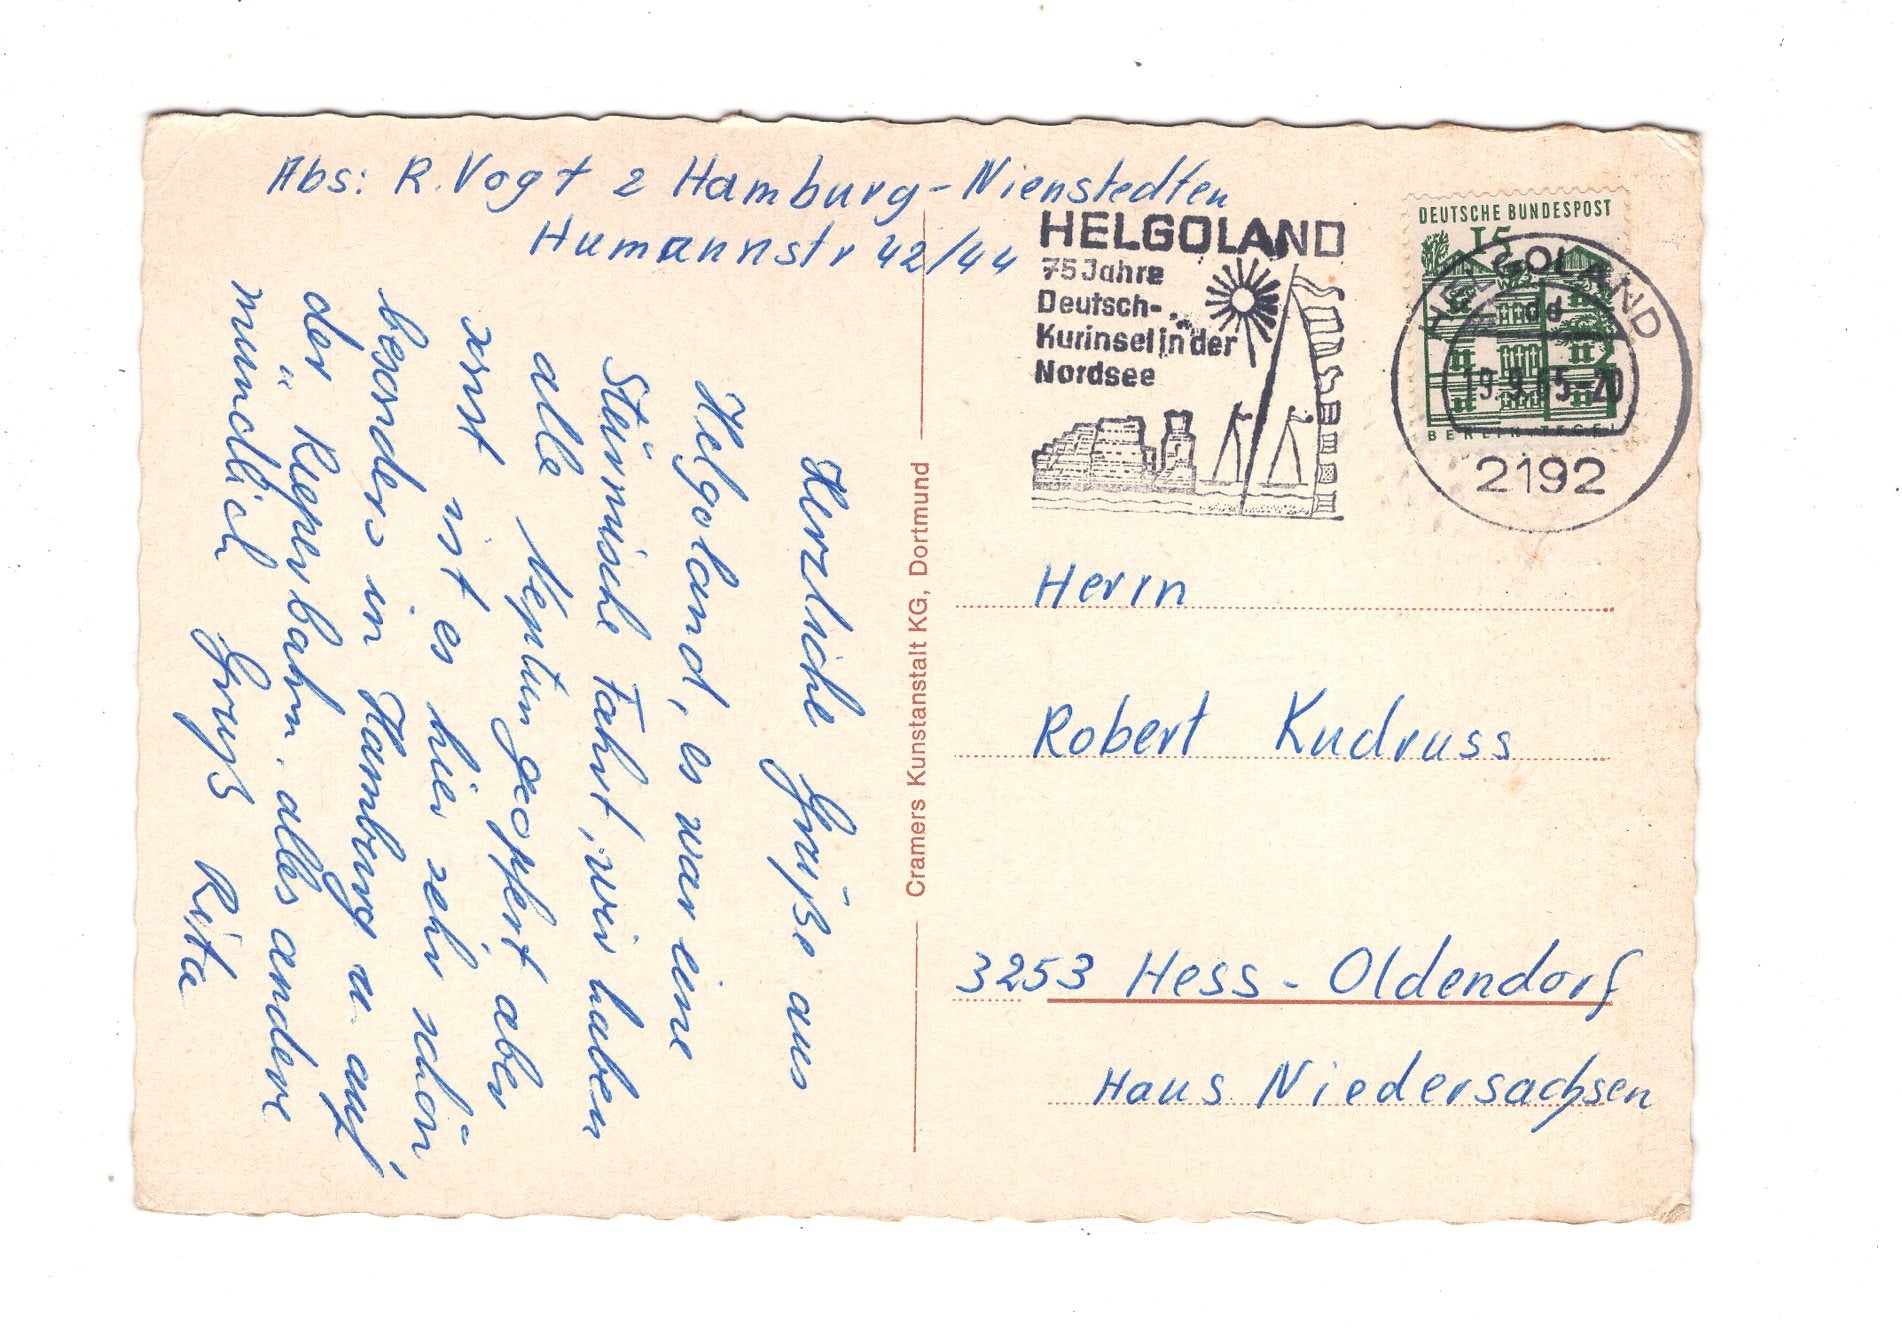 Abs: R. Vogt 2 Hamburg-Nienstedten
Humannstr 42/44
Herzliche Grüße aus
Helgoland, es war eine
Stürmische Fahrt, wir haben
alle Neptun geopfert aber
sonst ist es hier sehr schön
besonders in Hamburg u. auf
der Reeperbahn. alles andere
muendlich Gruß Rita
Cramers Kunstanstalt KG, Dortmund
HELGOLAND
75 Jahre
Deutsch-
Kurinsel in der
Nordsee
DEUTSCHE BUNDESPOST
15
BERLIN TEGEL
HELGOLAND
dd
19.9.65-20
2192
Herrn
Robert Kudruss
3253 Hess-Oldendorf
Haus Niedersachsen